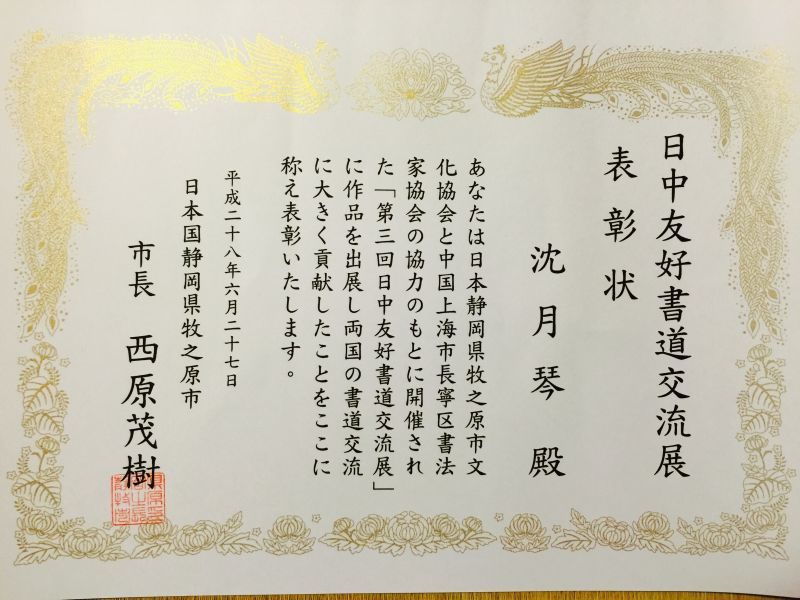 日中友好書道交流展
表彰状
沈月琴殿
あなたは日本静岡県牧之原市文
化協会と中国上海市長寧区書法
家協会の協力のもとに開催され
た「第三回日中友好書道交流展」
に作品を出展し両国の書道交流
に大きく貢献したことをここに
称え表彰いたします。
平成二十八年六月二十七日
日本国静岡県牧之原市
市長 西原茂樹